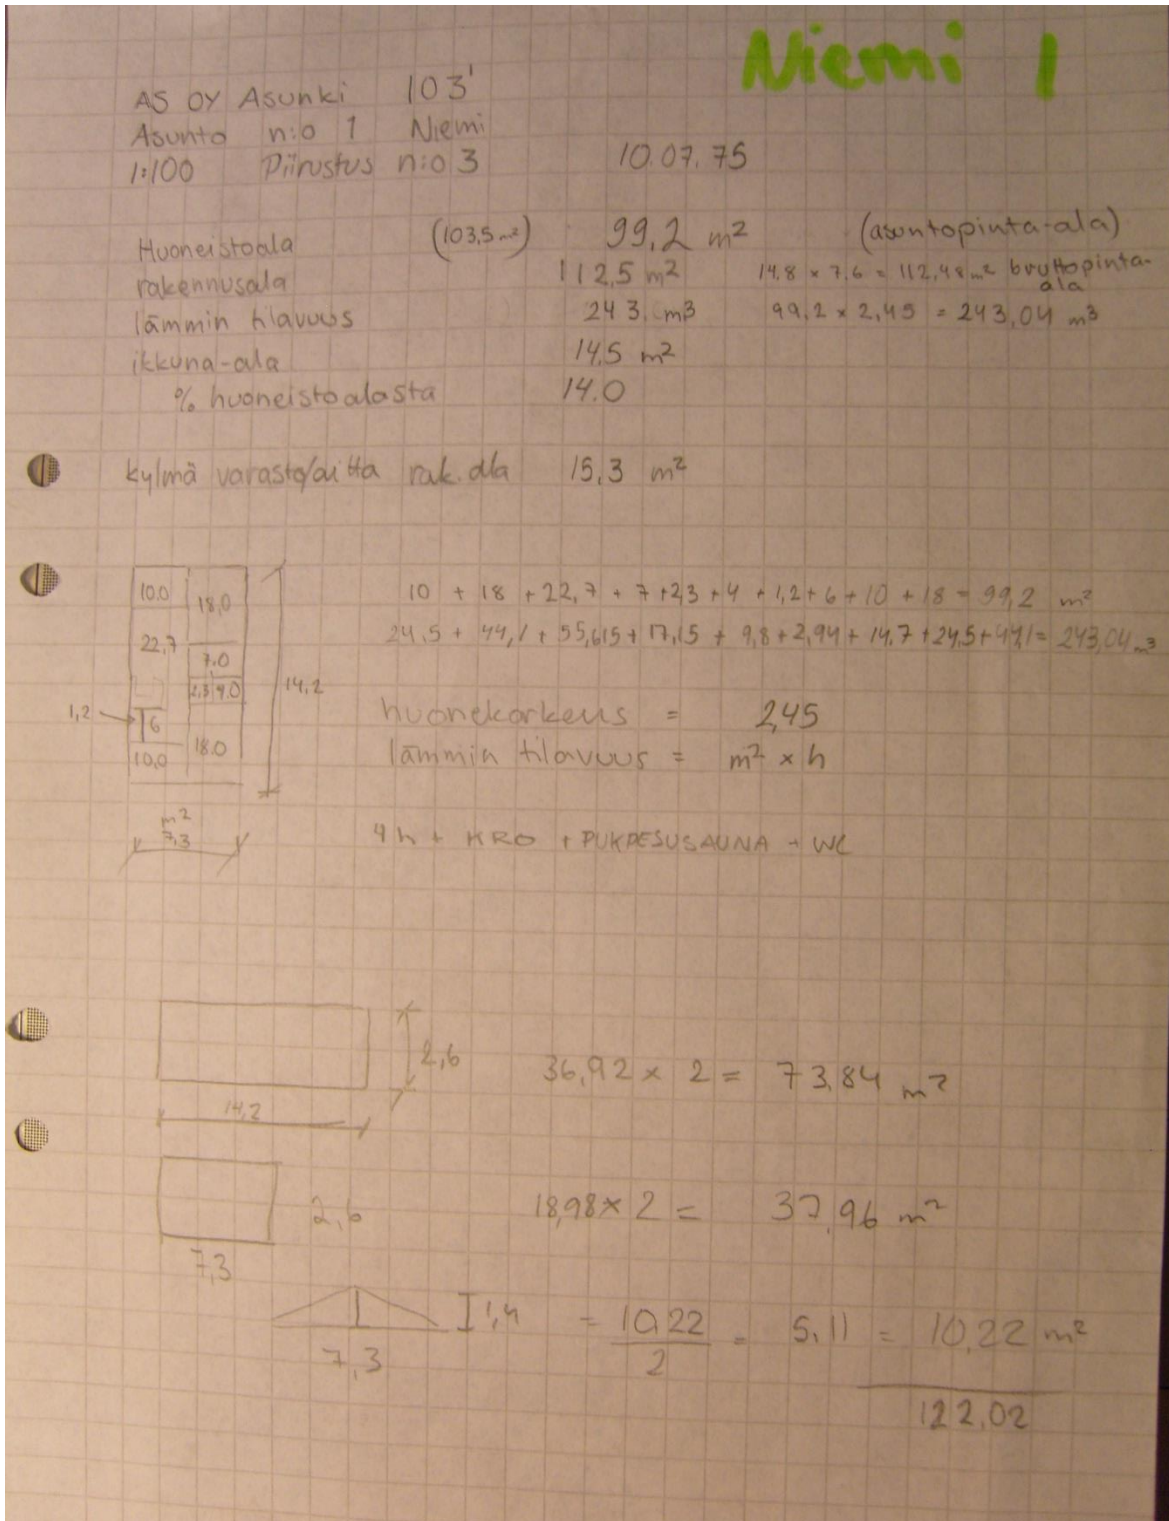 Niemi 1
AS OY Asunki 103'
Asunto n:o 1 Niemi
1:100 Piirustus n:o 3 10.07.75
Huoneistoala (103,5 m²) 99,2 m² (asuntopinta-ala)
rakennusala 112,5 m² 14,8 × 7,6 = 112,48 m² bruttopinta-
ala
lämmin tilavuus 243. m³ 99,2 × 2,45 = 243,04 m³
ikkuna-ala 14,5 m²
% huoneistoalasta 14.0
kylmä varasto/aitta rak.ala 15,3 m²
10.0 18,0
22,7
7.0
2,3 4.0
1,2 6
10,0 18.0
14,2
m²
7,3
10 + 18 + 22,7 + 7 + 2,3 + 4 + 1,2 + 6 + 10 + 18 = 99,2 m²
24,5 + 44,1 + 55,615 + 17,15 + 9,8 + 2,94 + 14,7 + 24,5 + 44,1 = 243,04 m³
huonekorkeus = 2,45
lämmin tilavuus = m² × h
4h + KRO + PUKPESUSAUNA + WC
2,6
14,2
36,92 × 2 = 73,84 m²
2,6
7,3
18,98 × 2 = 37,96 m²
1,4
7,3
= 10,22 / 2 = 5,11 = 10,22 m²
122,02